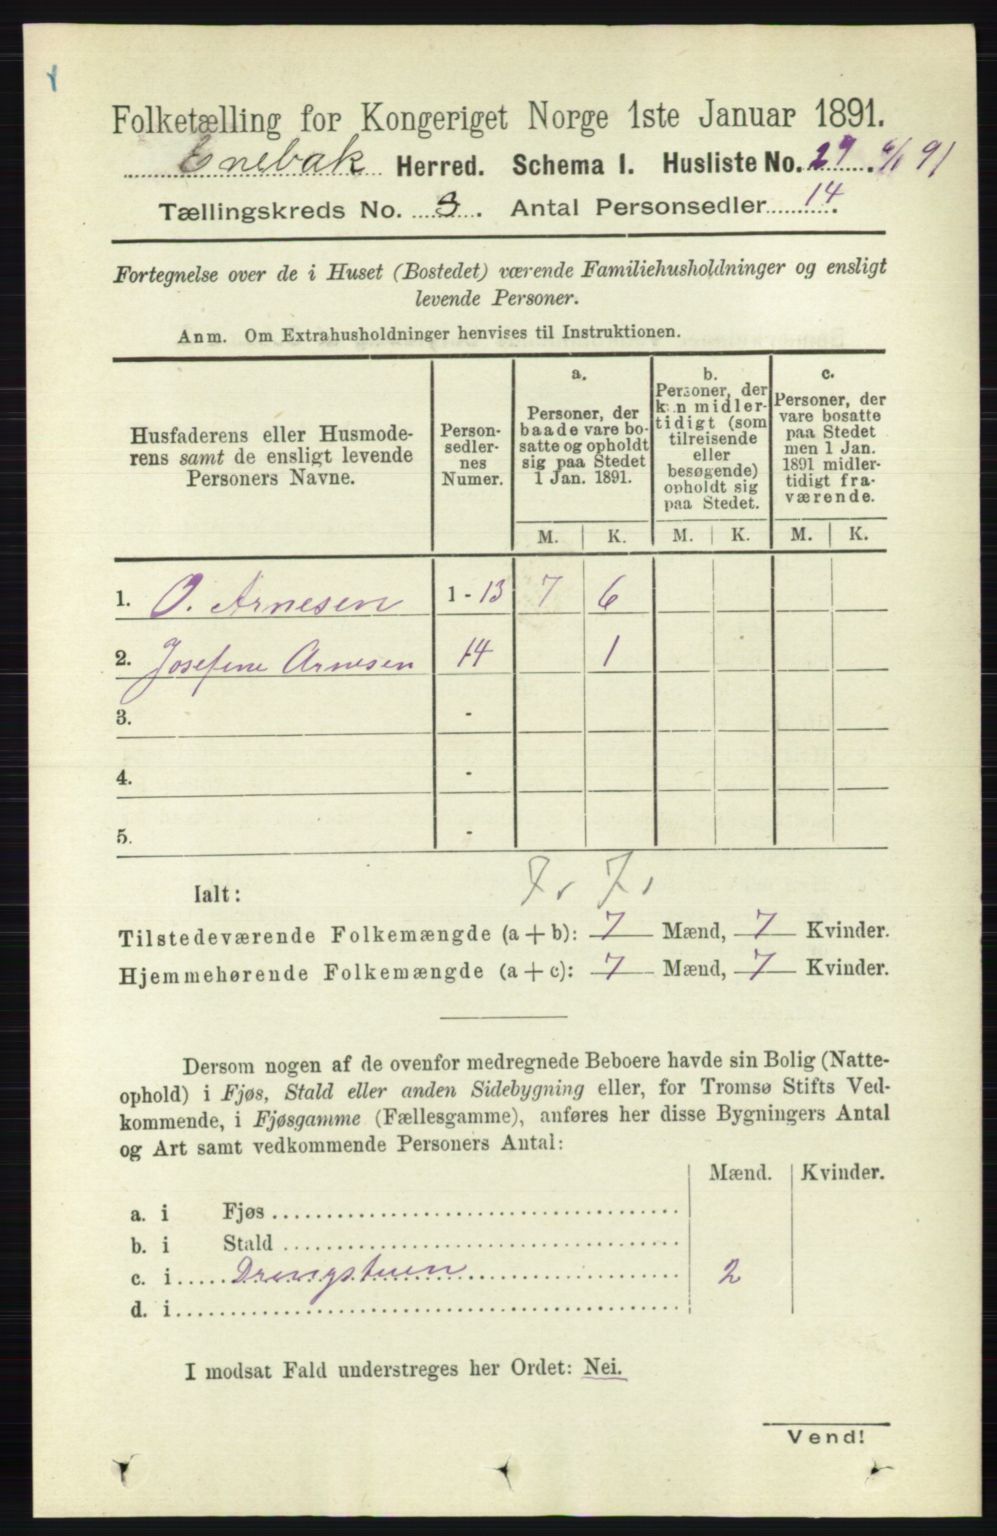 Folketælling for Kongeriget Norge 1ste Januar 1891.
Enebak Herred. Schema I. Husliste No. 29 6/1 91
Tællingskreds No. 3. Antal Personsedler 14.
Fortegnelse over de i Huset (Bostedet) værende Familiehusholdninger og ensligt
levende Personer.
Anm. Om Extrahusholdninger henvises til Instruktionen.
Husfaderens eller Husmode-
rens samt de ensligt levende
Personers Navne.
Person-
sedler-
nes
Numer.
a.
Personer, der
baade vare bo-
satte og opholdt
sig paa Stedet
1 Jan. 1891.
b.
Personer, der
kun midler-
tidigt (som
tilreisende
eller
besøgende)
opholdt sig
paa Stedet.
c.
Personer, der
vare bosatte
paa Stedet
men 1 Jan.
1891 midler-
tidigt fra-
værende.
M. K. M. K. M. K.
1. O. Arnesen 1 - 13 7 6
2. Josefine Arnesen 14 1
3. -
4. -
5. -
Ialt: 7. 7.
Tilstedeværende Folkemængde (a + b): 7 Mænd, 7 Kvinder.
Hjemmehørende Folkemængde (a + c): 7 Mænd, 7 Kvinder.
Dersom nogen af de ovenfor medregnede Beboere havde sin Bolig (Natte-
ophold) i Fjøs, Stald eller anden Sidebygning eller, for Tromsø Stifts Ved-
kommende, i Fjøsgamme (Fællesgamme), anføres her disse Bygningers Antal
og Art samt vedkommende Personers Antal:
Mænd. Kvinder.
a. i Fjøs
b. i Stald
c. i Drengstuen 2
d. i
I modsat Fald understreges her Ordet: Nei.
Vend!